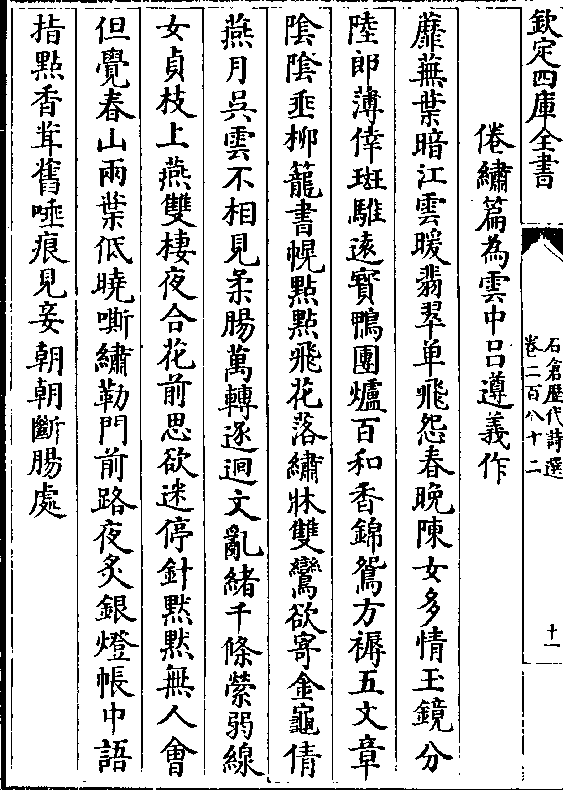 欽定四庫全書
石倉歷代詩選
卷二百八十二
十一
倦繡篇為雲中呂遵義作
蘼蕪葉暗江雲暖翡翠单飛怨春晚陳女多情玉鏡分
陸郎薄倖斑騅遠寳鴨團爐百和香錦鴛方褥五文章
隂隂垂柳籠書幌點點飛花落繡牀雙鸞欲寄金龜倩
燕月吳雲不相見柔腸萬轉逐迴文亂緒千條縈弱線
女貞枝上燕雙棲夜合花前思欲迷停針黙黙無人會
但覺春山兩葉低曉嘶繡勒門前路夜炙銀燈帳中語
指點香茸舊唾痕見妾朝朝斷腸處